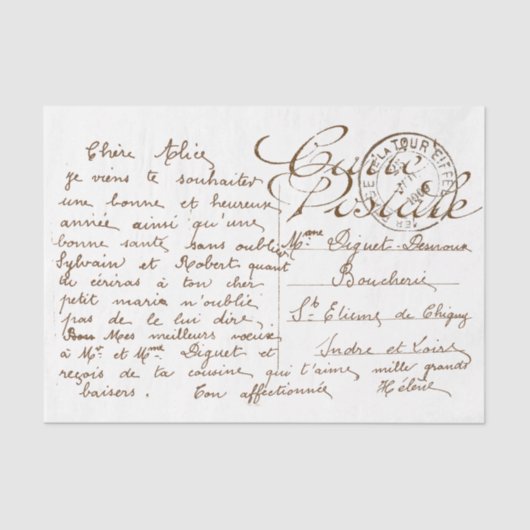 Carte
Postale
LA TOUR EIFFEL
Chère Alice
je viens te souhaiter
une bonne et heureuse
année ainsi qu'une
bonne santé sans oublier
Sylvain et Robert quant
du cériras à ton cher
petit marie n'oublie
pas de le lui dire
Mes meilleurs vœux
à Mr et Mme Diguet et
reçois de ta cousine qui t'aime mille grands
baisers. Ton affectionnée Hélène
Mme Diguet-Desnoux
Boucherie
St Etienne de Chigny
Indre et Loire